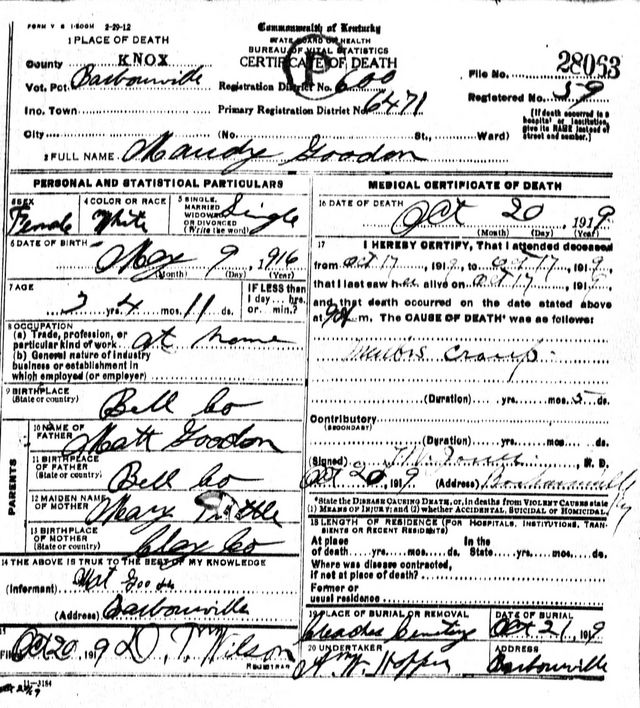 FORM V S 1-500M 2-29-12
Commonwealth of Kentucky
STATE BOARD OF HEALTH
BUREAU OF VITAL STATISTICS
CERTIFICATE OF DEATH
1 PLACE OF DEATH
County KNOX
Vot. Pct. Barbourville
Registration District No. 600
File No. 28063
Registered No. 59
Ino. Town
Primary Registration District No. 6471
City (No. St., Ward)
[If death occurred in a hospital or institution, give its NAME instead of street and number.]
2 FULL NAME Maudy Goodon
PERSONAL AND STATISTICAL PARTICULARS
3 SEX Female
4 COLOR OR RACE White
5 SINGLE, MARRIED WIDOWED OR DIVORCED (Write the word) Single
6 DATE OF BIRTH May 9, 1916
(Month) (Day) (Year)
7 AGE
3 yrs. 4 mos. 11 ds.
IF LESS than 1 day... hrs. or min.?
8 OCCUPATION
(a) Trade, profession, or particular kind of work at home
(b) General nature of industry business or establishment in which employed (or employer)
9 BIRTHPLACE
(State or country) Bell Co
PARENTS
10 NAME OF FATHER Matt Goodon
11 BIRTHPLACE OF FATHER (State or country) Bell Co
12 MAIDEN NAME OF MOTHER Mary
13 BIRTHPLACE OF MOTHER (State or country) Clay Co
14 THE ABOVE IS TRUE TO THE BEST OF MY KNOWLEDGE
(Informant)
(Address) Barbourville
15
Filed Oct 20 1919 D. T. Wilson
REGISTRAR
11-3184
MEDICAL CERTIFICATE OF DEATH
16 DATE OF DEATH Oct 20, 1919
(Month) (Day) (Year)
17 I HEREBY CERTIFY, That I attended deceased
from Oct 17, 1919, to Oct 17, 1919,
that I last saw her alive on Oct 17, 1919,
and that death occurred on the date stated above
at m. The CAUSE OF DEATH* was as follows:
Croup
(Duration) yrs. mos. 5 ds.
Contributory
(SECONDARY)
(Duration) yrs. mos. ds.
(Signed) M. D.
Oct 20 1919 (Address) Barbourville Ky
*State the DISEASE CAUSING DEATH, or, in deaths from VIOLENT CAUSES state
(1) MEANS OF INJURY; and (2) whether ACCIDENTAL, SUICIDAL or HOMICIDAL
18 LENGTH OF RESIDENCE (FOR HOSPITALS, INSTITUTIONS, TRANSIENTS OR RECENT RESIDENTS)
At place of death yrs. mos. ds. In the State yrs. mos. ds.
Where was disease contracted,
if not at place of death?
Former or
usual residence
19 PLACE OF BURIAL OR REMOVAL
Cemetery
DATE OF BURIAL
Oct 21 1919
20 UNDERTAKER
W. Hopper
ADDRESS
Barbourville